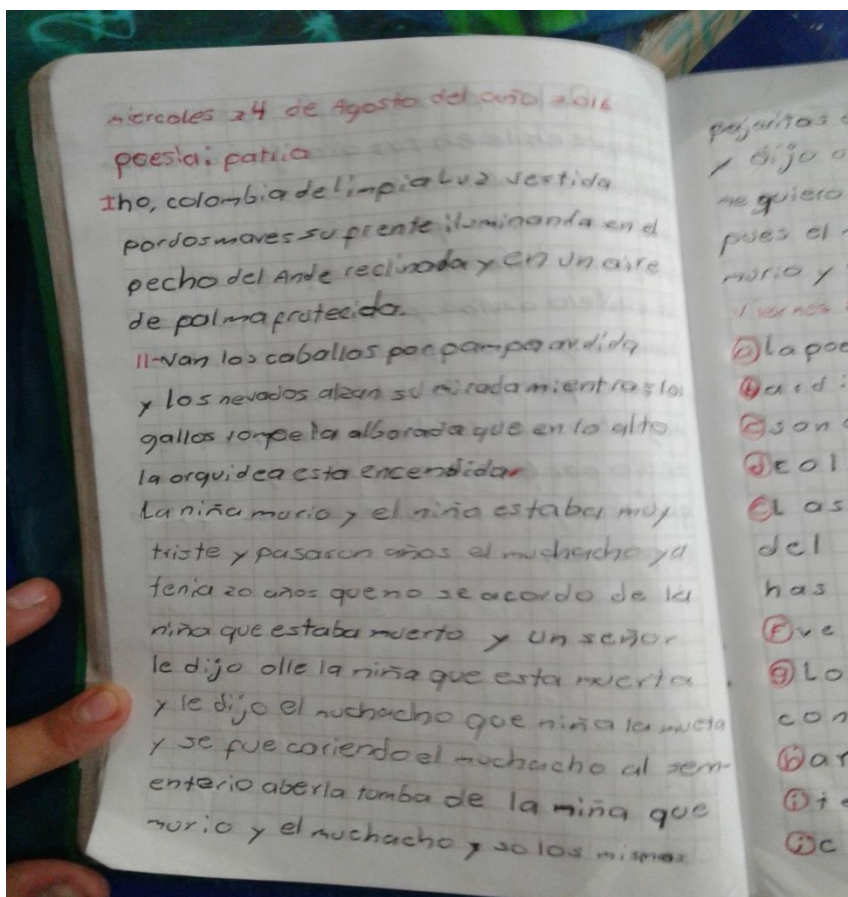 miercoles 24 de Agosto del año 2016
poesia: patria
Iho, colombia de limpia Luz vestida
pordosmares su frente iluminanda en el
pecho del Ande reclinada y en un aire
de palma protecida.
II-Van los caballos por pampa ardida
y los nevados alzan su mirada mientras los
gallos rompe la alborada que en lo alto
la orquidea esta encendida
La niña murio y el niño estaba muy
triste y pasaron años el muchacho ya
tenia 20 años que no se acordo de la
niña que estaba muerto y un señor
le dijo olle la niña que esta muerta
y le dijo el muchacho que niña la mueta
y se fue coriendo el muchacho al sem-
enterio aberla tomba de la niña que
murio y el muchacho y so los mismos
pajaritos
y dijo
me quiero
pues el
murio y
Viernes
a la poe
b
c son
d col
e Las
del
has
f ve
g Lo
con
h ar
i
j c